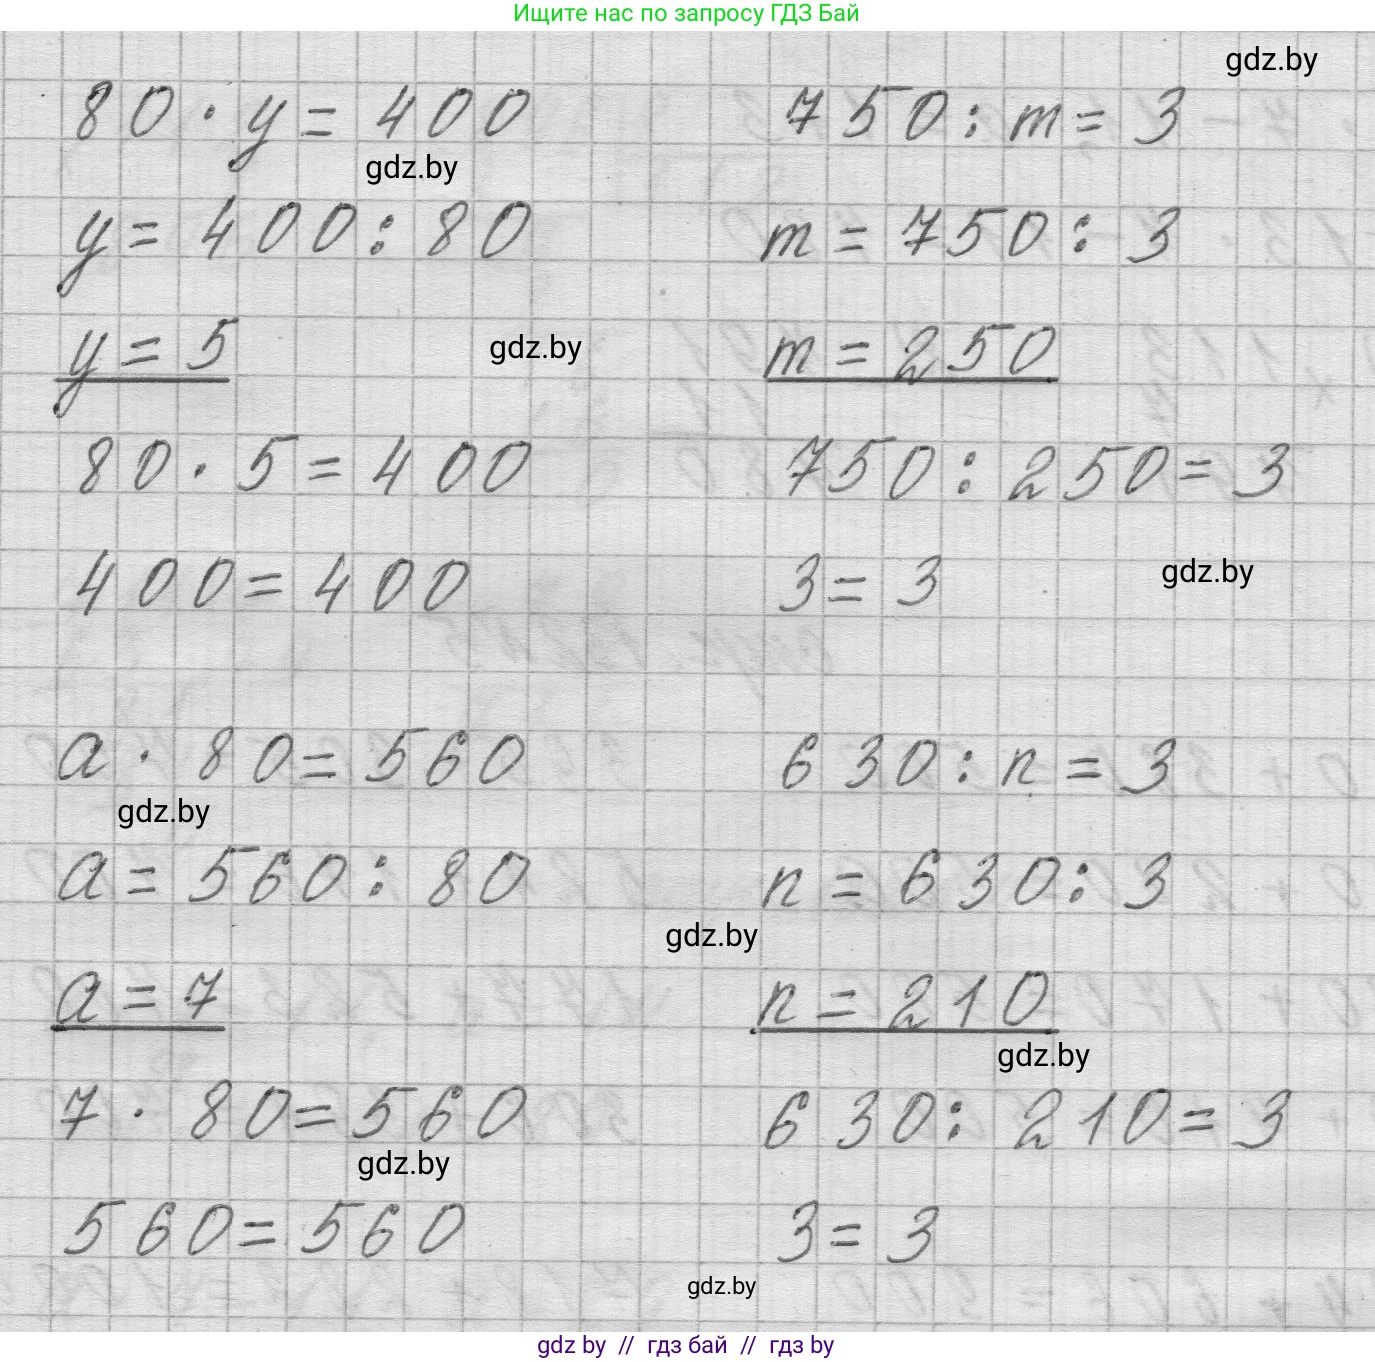 Ищите нас по запросу ГДЗ Бай
gdz.by
80 · y = 400
gdz.by
y = 400 : 80
y = 5
gdz.by
80 · 5 = 400
400 = 400
750 : m = 3
m = 750 : 3
m = 250
750 : 250 = 3
3 = 3
gdz.by
a · 80 = 560
gdz.by
a = 560 : 80
a = 7
7 · 80 = 560
gdz.by
560 = 560
630 : n = 3
n = 630 : 3
gdz.by
n = 210
gdz.by
630 : 210 = 3
3 = 3
gdz.by
gdz by // гдз бай // гдз by